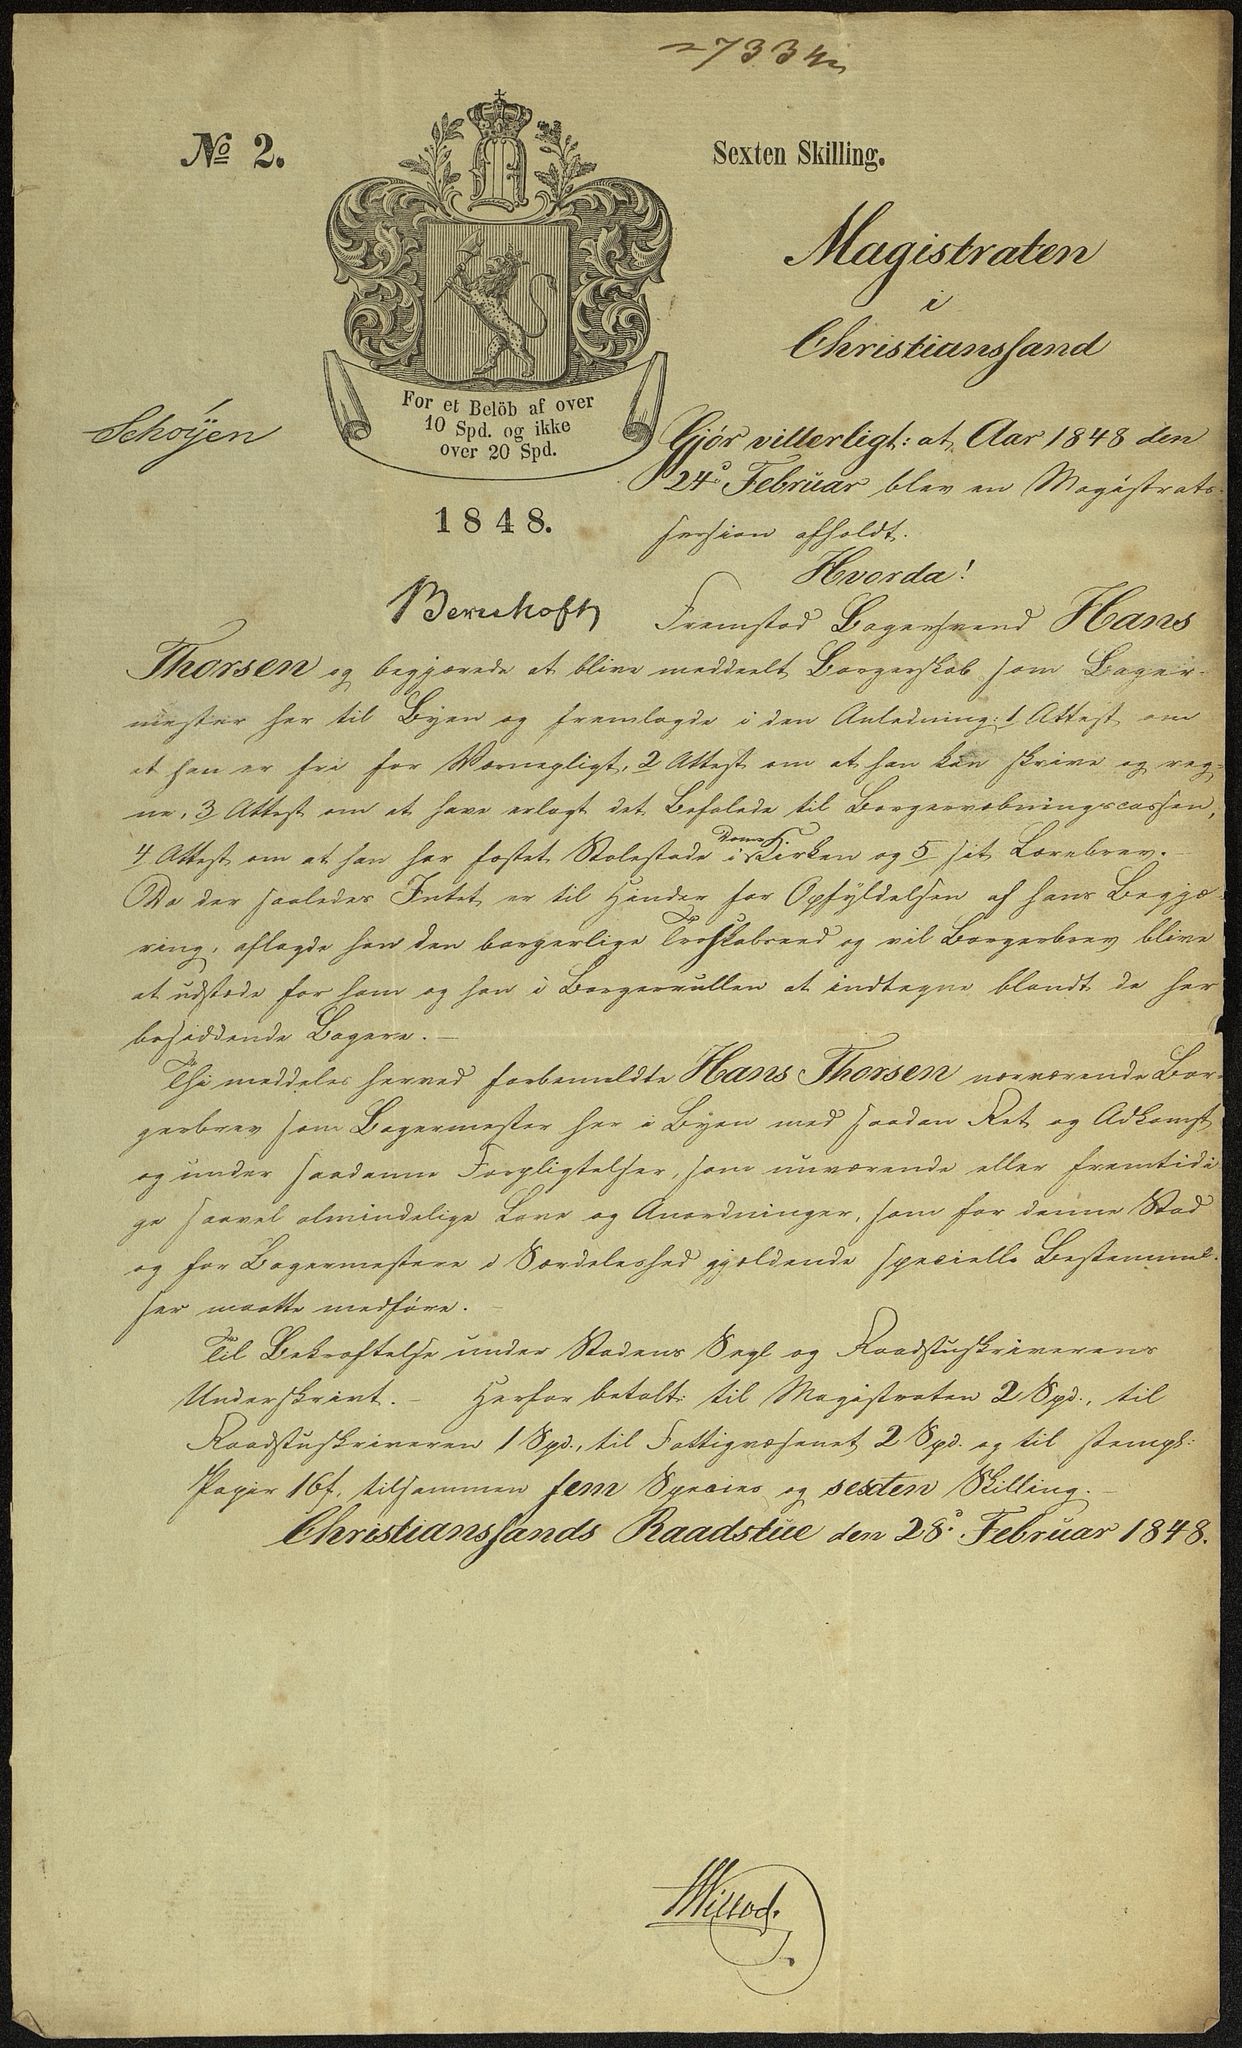 27334
No 2.
Sexten Skilling.
Magistraten
i
Christianssand
For et Belöb af over
10 Spd. og ikke
over 20 Spd.
Schøyen
1848.
Gjør vitterligt: at Aar 1848 den
24de Februar blev en Magistrats-
session afholdt.
Hvorda!
Fremstod Bagersvend Hans
Thorsen og begjærede at blive meddeelt Borgerskab som Bager-
mester her til Byen og fremlagde i den Anledning: 1 Attest om
at han er fri for Værnepligt, 2 Attest om at han kan skrive og reg-
ne, 3 Attest om at have erlagt det Befalede til Borgervæbningscassen,
4 Attest om at han har fæstet Stolestade i Domkirken og 5 sit Lærebrev. –
Da der saaledes Intet er til Hinder for Opfyldelsen af hans Begjæ-
ring, aflagde han den borgerlige Troskabseed og vil Borgerbrev blive
at udstæde for ham og han i Borgerrullen at indtegne blandt de her
besiddende Bagere. –
Thi meddeles herved forbemeldte Hans Thorsen nærværende Bor-
gerbrev som Bagermester her i Byen med saadan Ret og Adkomst
og under saadanne Forpligtelser, som nuværende eller fremtidi-
ge saavel almindelige Love og Anordninger, som for denne Stad
og for Bagermestere i Særdeleshed gjældende specielle Bestemmel-
ser maatte medføre. –
Til Bekræftelse under Stadens Segl og Raadstuskriverens
Underskrivt. – Herfor betalt: til Magistraten 2 Spd., til
Raadstuskriveren 1 Spd., til Fattigvæsenet 2 Spd. og til stempl:
Papir 16 s, tilsammen fem Species og sexten Skilling. –
Christianssands Raadstue den 28de Februar 1848.